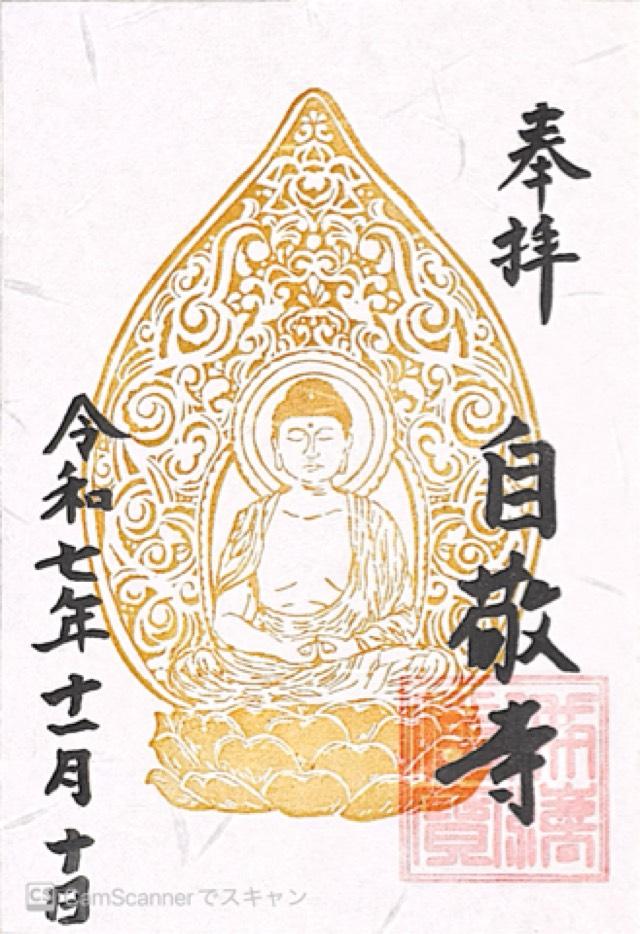 奉拝
自敬寺
令和七年十一月十日
CS CamScannerでスキャン